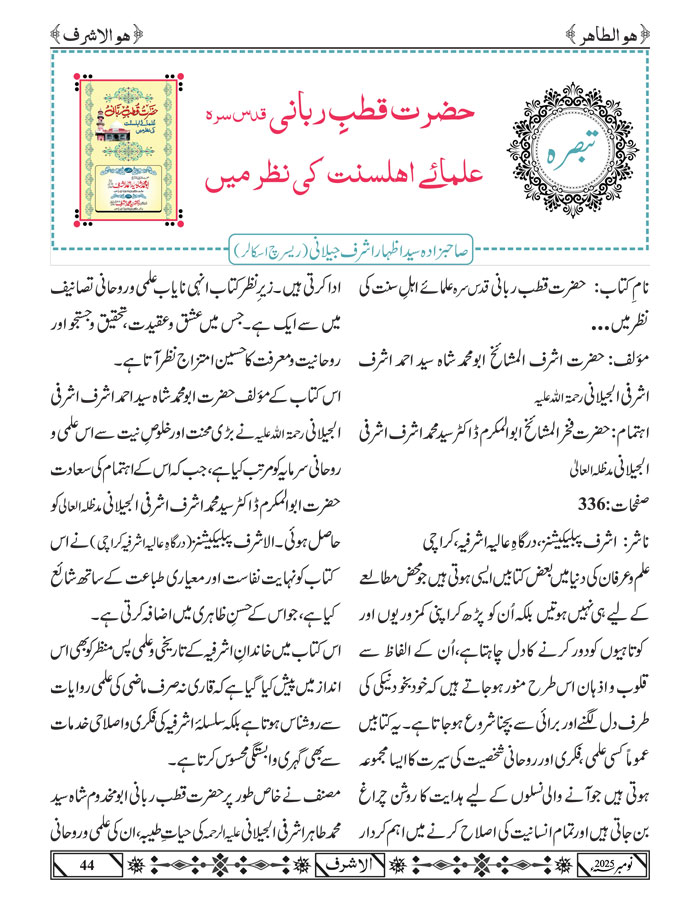 ﴿هو الطاہر﴾
﴿هو الاشرف﴾
تبصرہ
حضرت قطبِ ربانی قدس سرہ
علمائے اھلسنت کی نظر میں
صاحبزادہ سید اظہار اشرف جیلانی (ریسرچ اسکالر)
نامِ کتاب: حضرت قطب ربانی قدس سرہ علمائے اہلِ سنت کی
نظر میں...
مؤلف: حضرت اشرف المشائخ ابو محمد شاہ سید احمد اشرف
اشرفی الجیلانی رحمۃ اللہ علیہ
اہتمام: حضرت فخر المشائخ ابوالمکرم ڈاکٹر سید محمد اشرف اشرفی
الجیلانی مدظلہ العالیٰ
صفحات:336
ناشر: اشرف پبلیکیشنز، درگاہِ عالیہ اشرفیہ، کراچی
علم و عرفان کی دنیا میں بعض کتابیں ایسی ہوتی ہیں جو محض مطالعے
کے لیے ہی نہیں ہوتیں بلکہ اُن کو پڑھ کر اپنی کمزوریوں اور
کوتاہیوں کو دور کرنے کا دل چاہتا ہے، اُن کے الفاظ سے
قلوب و اذہان اس طرح منور ہو جاتے ہیں کہ خود بخود نیکی کی
طرف دل لگنے اور برائی سے بچنا شروع ہو جاتا ہے۔ یہ کتابیں
عموماً کسی علمی، فکری اور روحانی شخصیت کی سیرت کا ایسا مجموعہ
ہوتی ہیں جو آنے والی نسلوں کے لیے ہدایت کا روشن چراغ
بن جاتی ہیں اور تمام انسانیت کی اصلاح کرنے میں اہم کردار
ادا کرتی ہیں۔ زیرِ نظر کتاب انہی نایاب علمی و روحانی تصانیف
میں سے ایک ہے۔ جس میں عشق و عقیدت، تحقیق و جستجو اور
روحانیت و معرفت کا حسین امتزاج نظر آتا ہے۔
اس کتاب کے مؤلف حضرت ابو محمد شاہ سید احمد اشرف اشرفی
الجیلانی رحمۃ اللہ علیہ نے بڑی محنت اور خلوصِ نیت سے اس علمی و
روحانی سرمایہ کو مرتب کیا ہے، جب کہ اس کے اہتمام کی سعادت
حضرت ابوالمکرم ڈاکٹر سید محمد اشرف اشرفی الجیلانی مدظلہ العالی کو
حاصل ہوئی۔ الاشرف پبلیکیشنز (درگاہِ عالیہ اشرفیہ کراچی) نے اس
کتاب کو نہایت نفاست اور معیاری طباعت کے ساتھ شائع
کیا ہے، جو اس کے حسنِ ظاہری میں اضافہ کرتی ہے۔
اس کتاب میں خاندانِ اشرفیہ کے تاریخی و علمی پس منظر کو بھی اس
انداز میں پیش کیا گیا ہے کہ قاری نہ صرف ماضی کی علمی روایات
سے روشناس ہوتا ہے بلکہ سلسلۂ اشرفیہ کی فکری و اصلاحی خدمات
سے بھی گہری وابستگی محسوس کرتا ہے۔
مصنف نے خاص طور پر حضرت قطب ربانی ابو مخدوم شاہ سید
محمد طاہر اشرفی الجیلانی علیہ الرحمہ کی حیاتِ طیبہ، ان کی علمی و روحانی
نومبر 2025ء
الاشرف
44